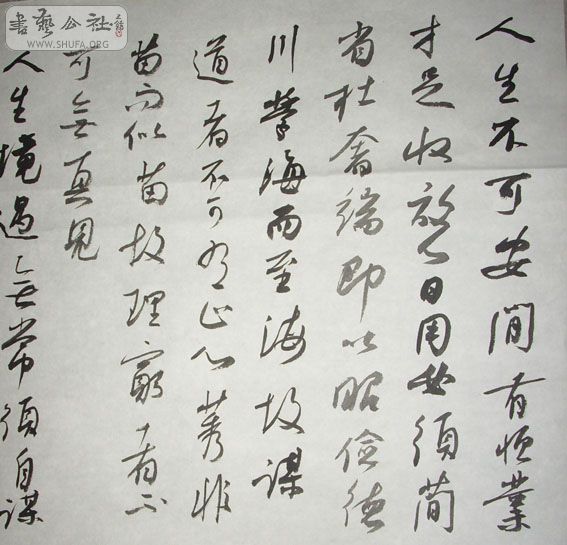 書藝公社
WWW.SHUFA.ORG
人生不可安閒有恒業
才足收放心日用必須簡
省杜奢端即以昭儉德
川學海而至海故謀
道者不可有止心莠非
苗而似苗故理窮者不
可無真見
人生境遇無常須自謀